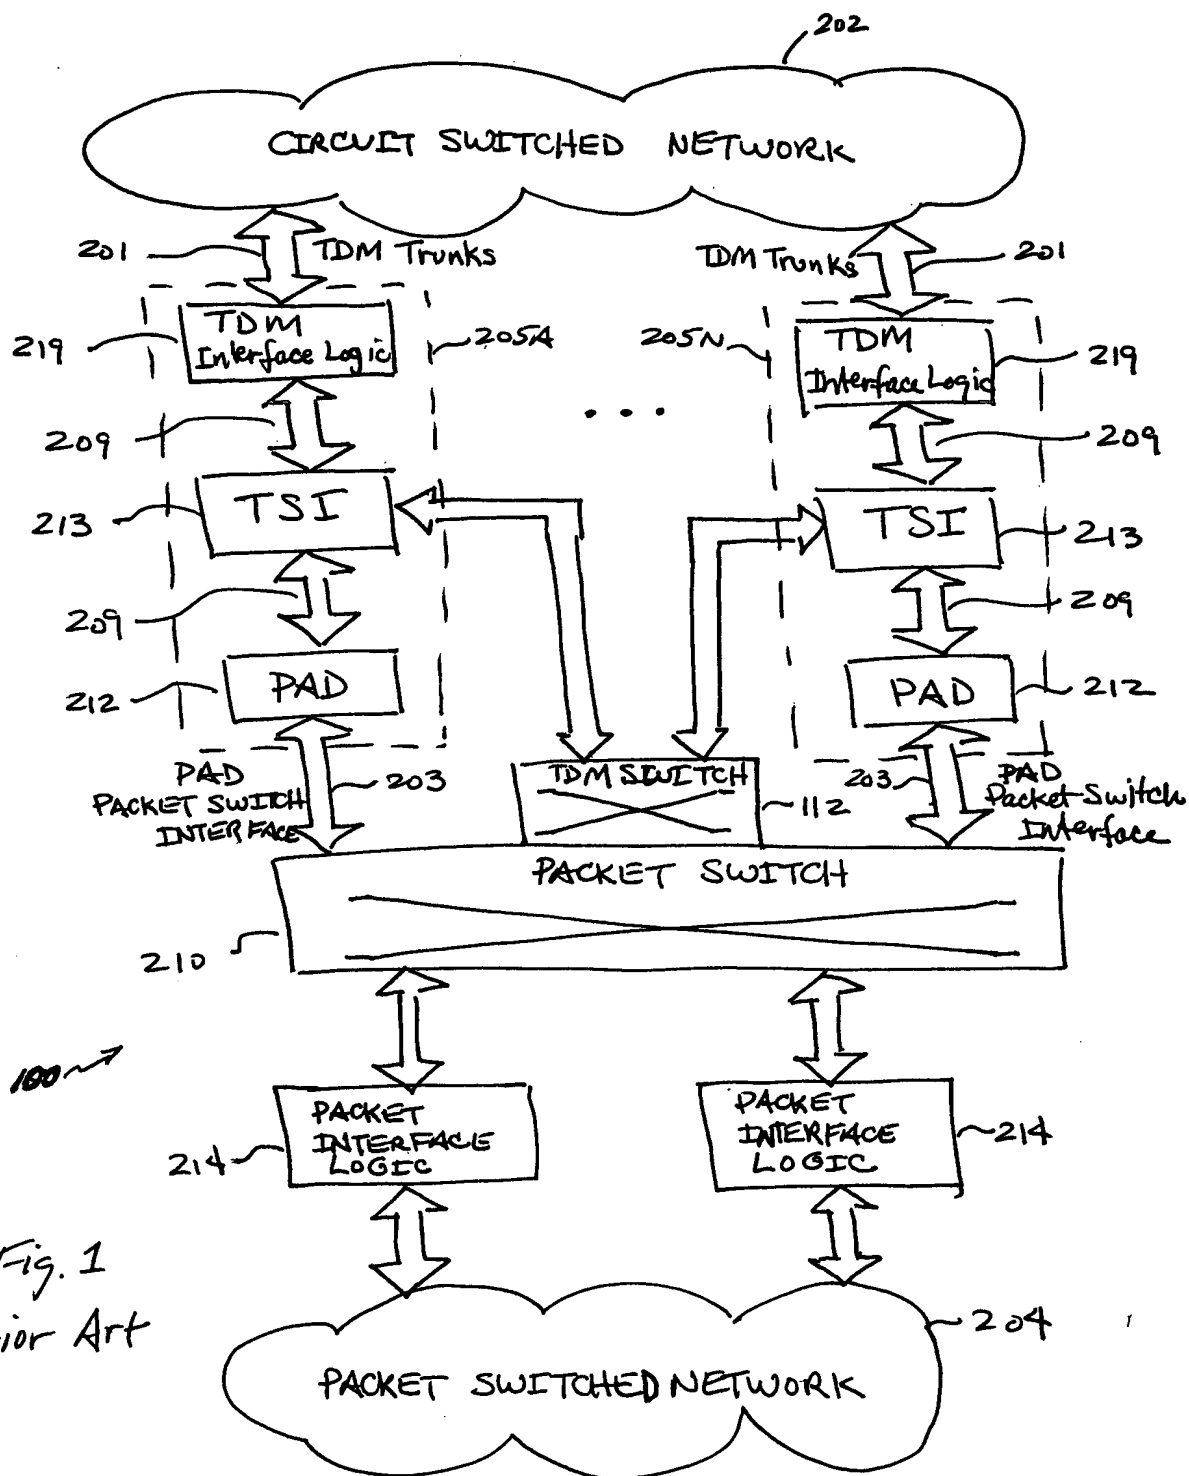 202
CIRCUIT SWITCHED NETWORK
201
TDM Trunks
TDM Trunks
201
219
TDM
Interface Logic
205A
205N
TDM
Interface Logic
219
209
...
209
213
TSI
TSI
213
209
209
212
PAD
PAD
212
PAD
PACKET SWITCH
INTERFACE
203
TDM SIWITCH
112
203
PAD
Packet Switch
Interface
PACKET SWITCH
210
100
PACKET
INTERFACE
LOGIC
214
PACKET
INTERFACE
LOGIC
214
Fig. 1
ior Art
204
PACKET SWITCHED NETWORK